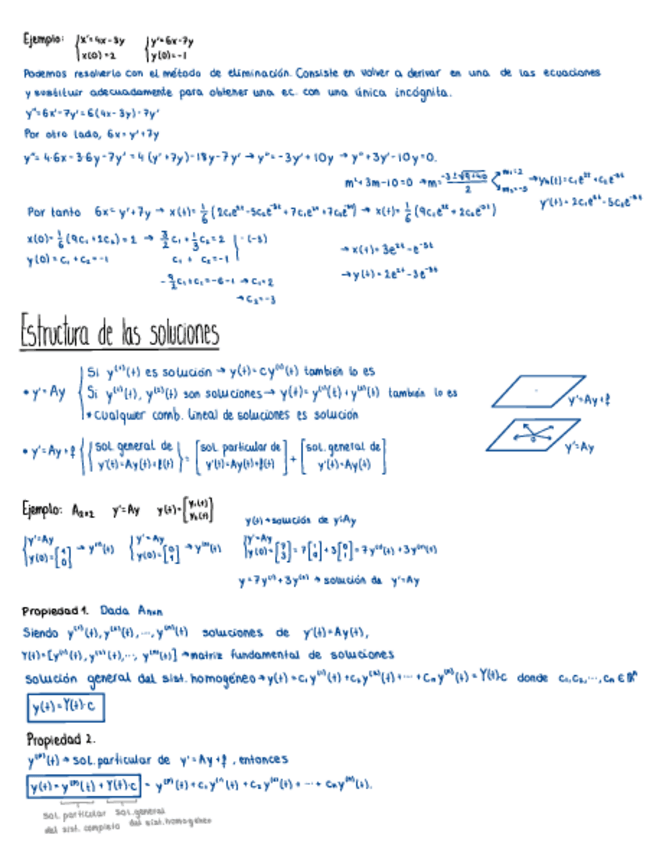 Ejemplo: {x'=4x-3y x(0)=2 {y'=6x-7y y(0)=-1
Podemos resolverlo con el método de eliminación. Consiste en volver a derivar en una de las ecuaciones
y sustituir adecuadamente para obtener una ec. con una única incógnita.
y''=6x'-7y'=6(4x-3y)-7y'
Por otro lado, 6x=y'+7y
y''=4·6x-3·6y-7y'=4(y'+7y)-18y-7y' → y''=-3y'+10y → y''+3y'-10y=0.
m²+3m-10=0 → m=(-3±√(9+40))/2 m₁=2 m₂=-5 → yₕ(t)=c₁e²ᵗ+c₂e⁻⁵ᵗ
y'(t)=2c₁e²ᵗ-5c₂e⁻⁵ᵗ
Por tanto 6x=y'+7y → x(t)=1/6(2c₁e²ᵗ-5c₂e⁻⁵ᵗ+7c₁e²ᵗ+7c₂e⁻⁵ᵗ) → x(t)=1/6(9c₁e²ᵗ+2c₂e⁻⁵ᵗ)
x(0)=1/6(9c₁+2c₂)=2 → 3/2c₁+1/3c₂=2 | ·(-3)
y(0)=c₁+c₂=-1 c₁+c₂=-1
→ x(t)=3e²ᵗ-e⁻⁵ᵗ
-9/2c₁+c₁=-6-1 → c₁=2
→ c₂=-3
→ y(t)=2e²ᵗ-3e⁻⁵ᵗ
Estructura de las soluciones
• y'=Ay
Si y⁽¹⁾(t) es solución → y(t)=cy⁽¹⁾(t) también lo es
Si y⁽¹⁾(t), y⁽²⁾(t) son soluciones → y(t)=y⁽¹⁾(t)+y⁽²⁾(t) también lo es
* cualquier comb. lineal de soluciones es solución
y'=Ay+f
y'=Ay
• y'=Ay+f { {sol. general de y'(t)=Ay(t)+f(t)} = [sol. particular de y'(t)=Ay(t)+f(t)] + [sol. general de y'(t)=Ay(t)]
Ejemplo: A₂ₓ₂ y'=Ay y(t)=[y₁(t) y₂(t)]
y(t) → solución de y'=Ay
{y'=Ay y(0)=[1 0] → y⁽¹⁾(t) {y'=Ay y(0)=[0 1] → y⁽²⁾(t) {y'=Ay y(0)=[7 3]=7[1 0]+3[0 1]=7y⁽¹⁾(t)+3y⁽²⁾(t)
y=7y⁽¹⁾+3y⁽²⁾ → solución de y'=Ay
Propiedad 1. Dada Aₙₓₙ
Siendo y⁽¹⁾(t), y⁽²⁾(t), ..., y⁽ⁿ⁾(t) soluciones de y'(t)=Ay(t),
Y(t)=[y⁽¹⁾(t), y⁽²⁾(t), ..., y⁽ⁿ⁾(t)] → matriz fundamental de soluciones
solución general del sist. homogéneo → y(t)=c₁y⁽¹⁾(t)+c₂y⁽²⁾(t)+...+cₙy⁽ⁿ⁾(t)=Y(t)·c donde c₁,c₂,...,cₙ∈ℝ
y(t)=Y(t)·c
Propiedad 2.
y⁽ᵖ⁾(t) → sol. particular de y'=Ay+f, entonces
y(t)=y⁽ᵖ⁾(t)+Y(t)·c = y⁽ᵖ⁾(t)+c₁y⁽¹⁾(t)+c₂y⁽²⁾(t)+...+cₙy⁽ⁿ⁾(t).
sol. particular sol. general
del sist. completo del sist. homogéneo